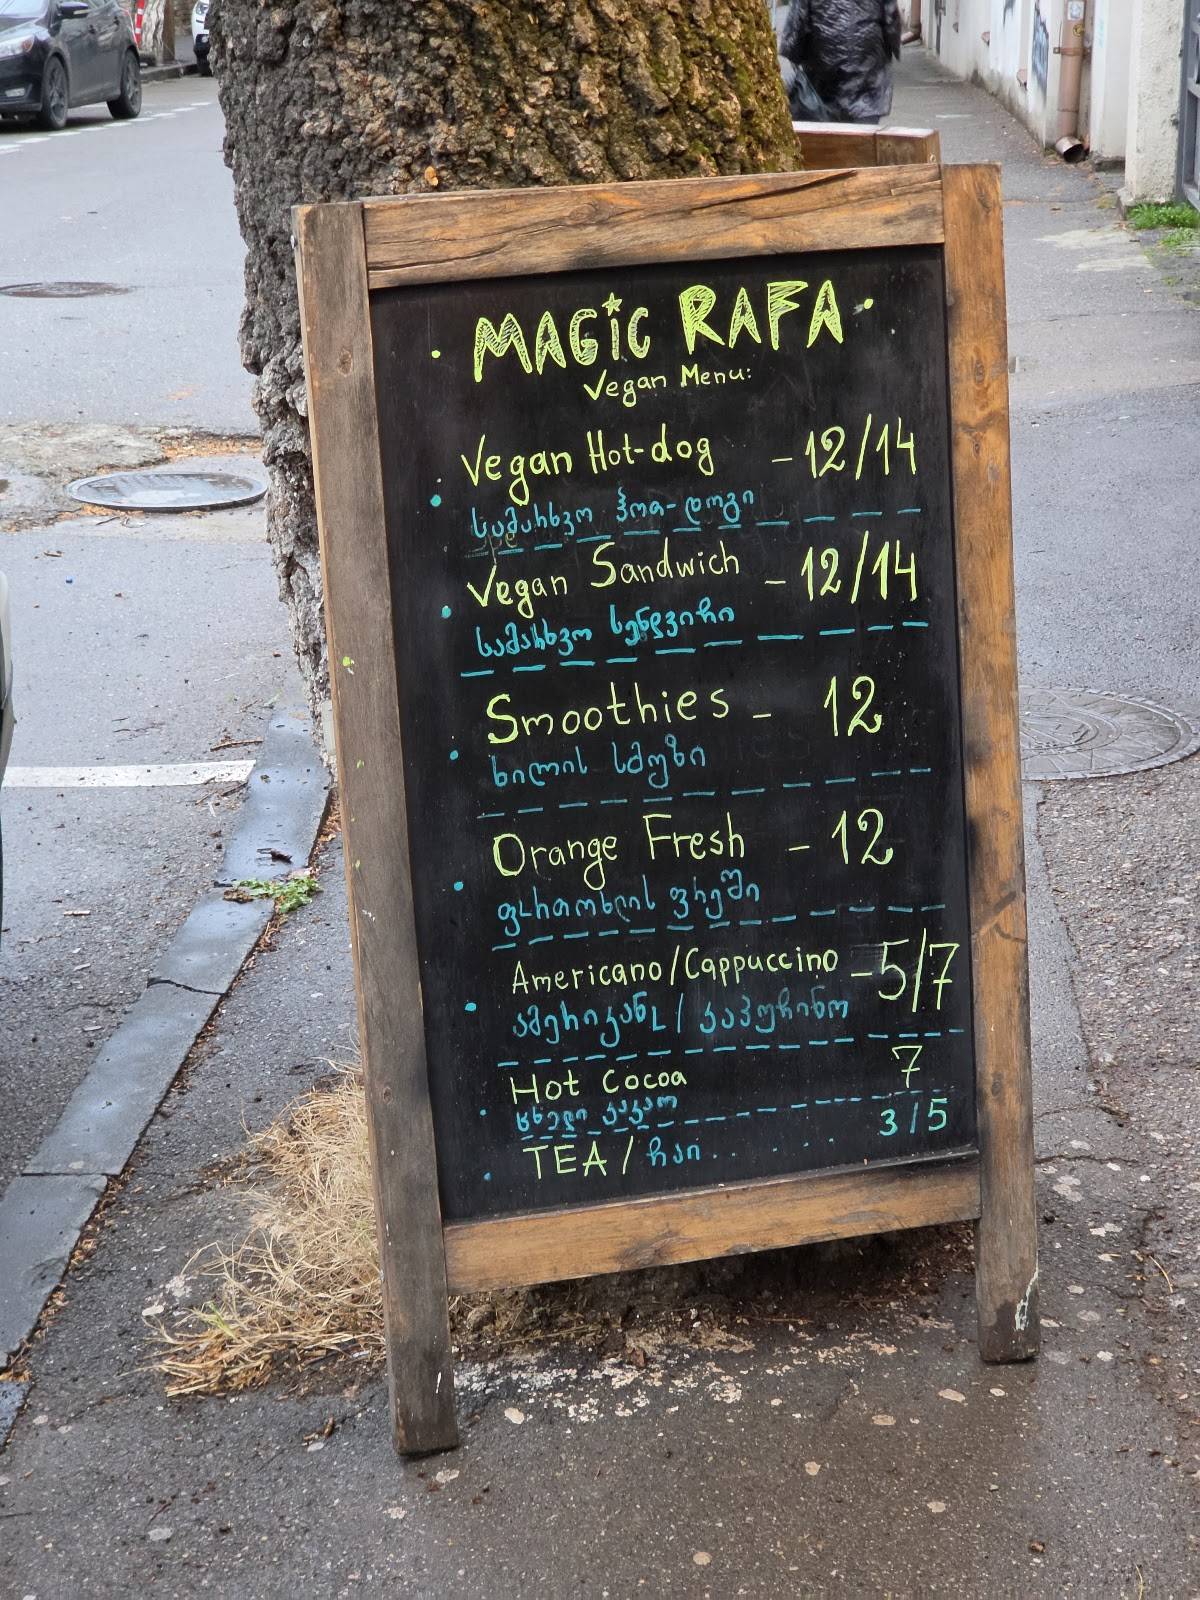 MAGIC RAFA
Vegan Menu:
Vegan Hot-dog - 12/14
სამარხვო ჰოთ-დოგი
Vegan Sandwich - 12/14
სამარხვო სენდვიჩი
Smoothies - 12
ხილის სმუზი
Orange Fresh - 12
ფორთოხლის ფრეში
Americano/Cappuccino - 5/7
ამერიკანო / კაპუჩინო
Hot Cocoa 7
ცხელი კაკაო
TEA / ჩაი . . . . . . 3/5